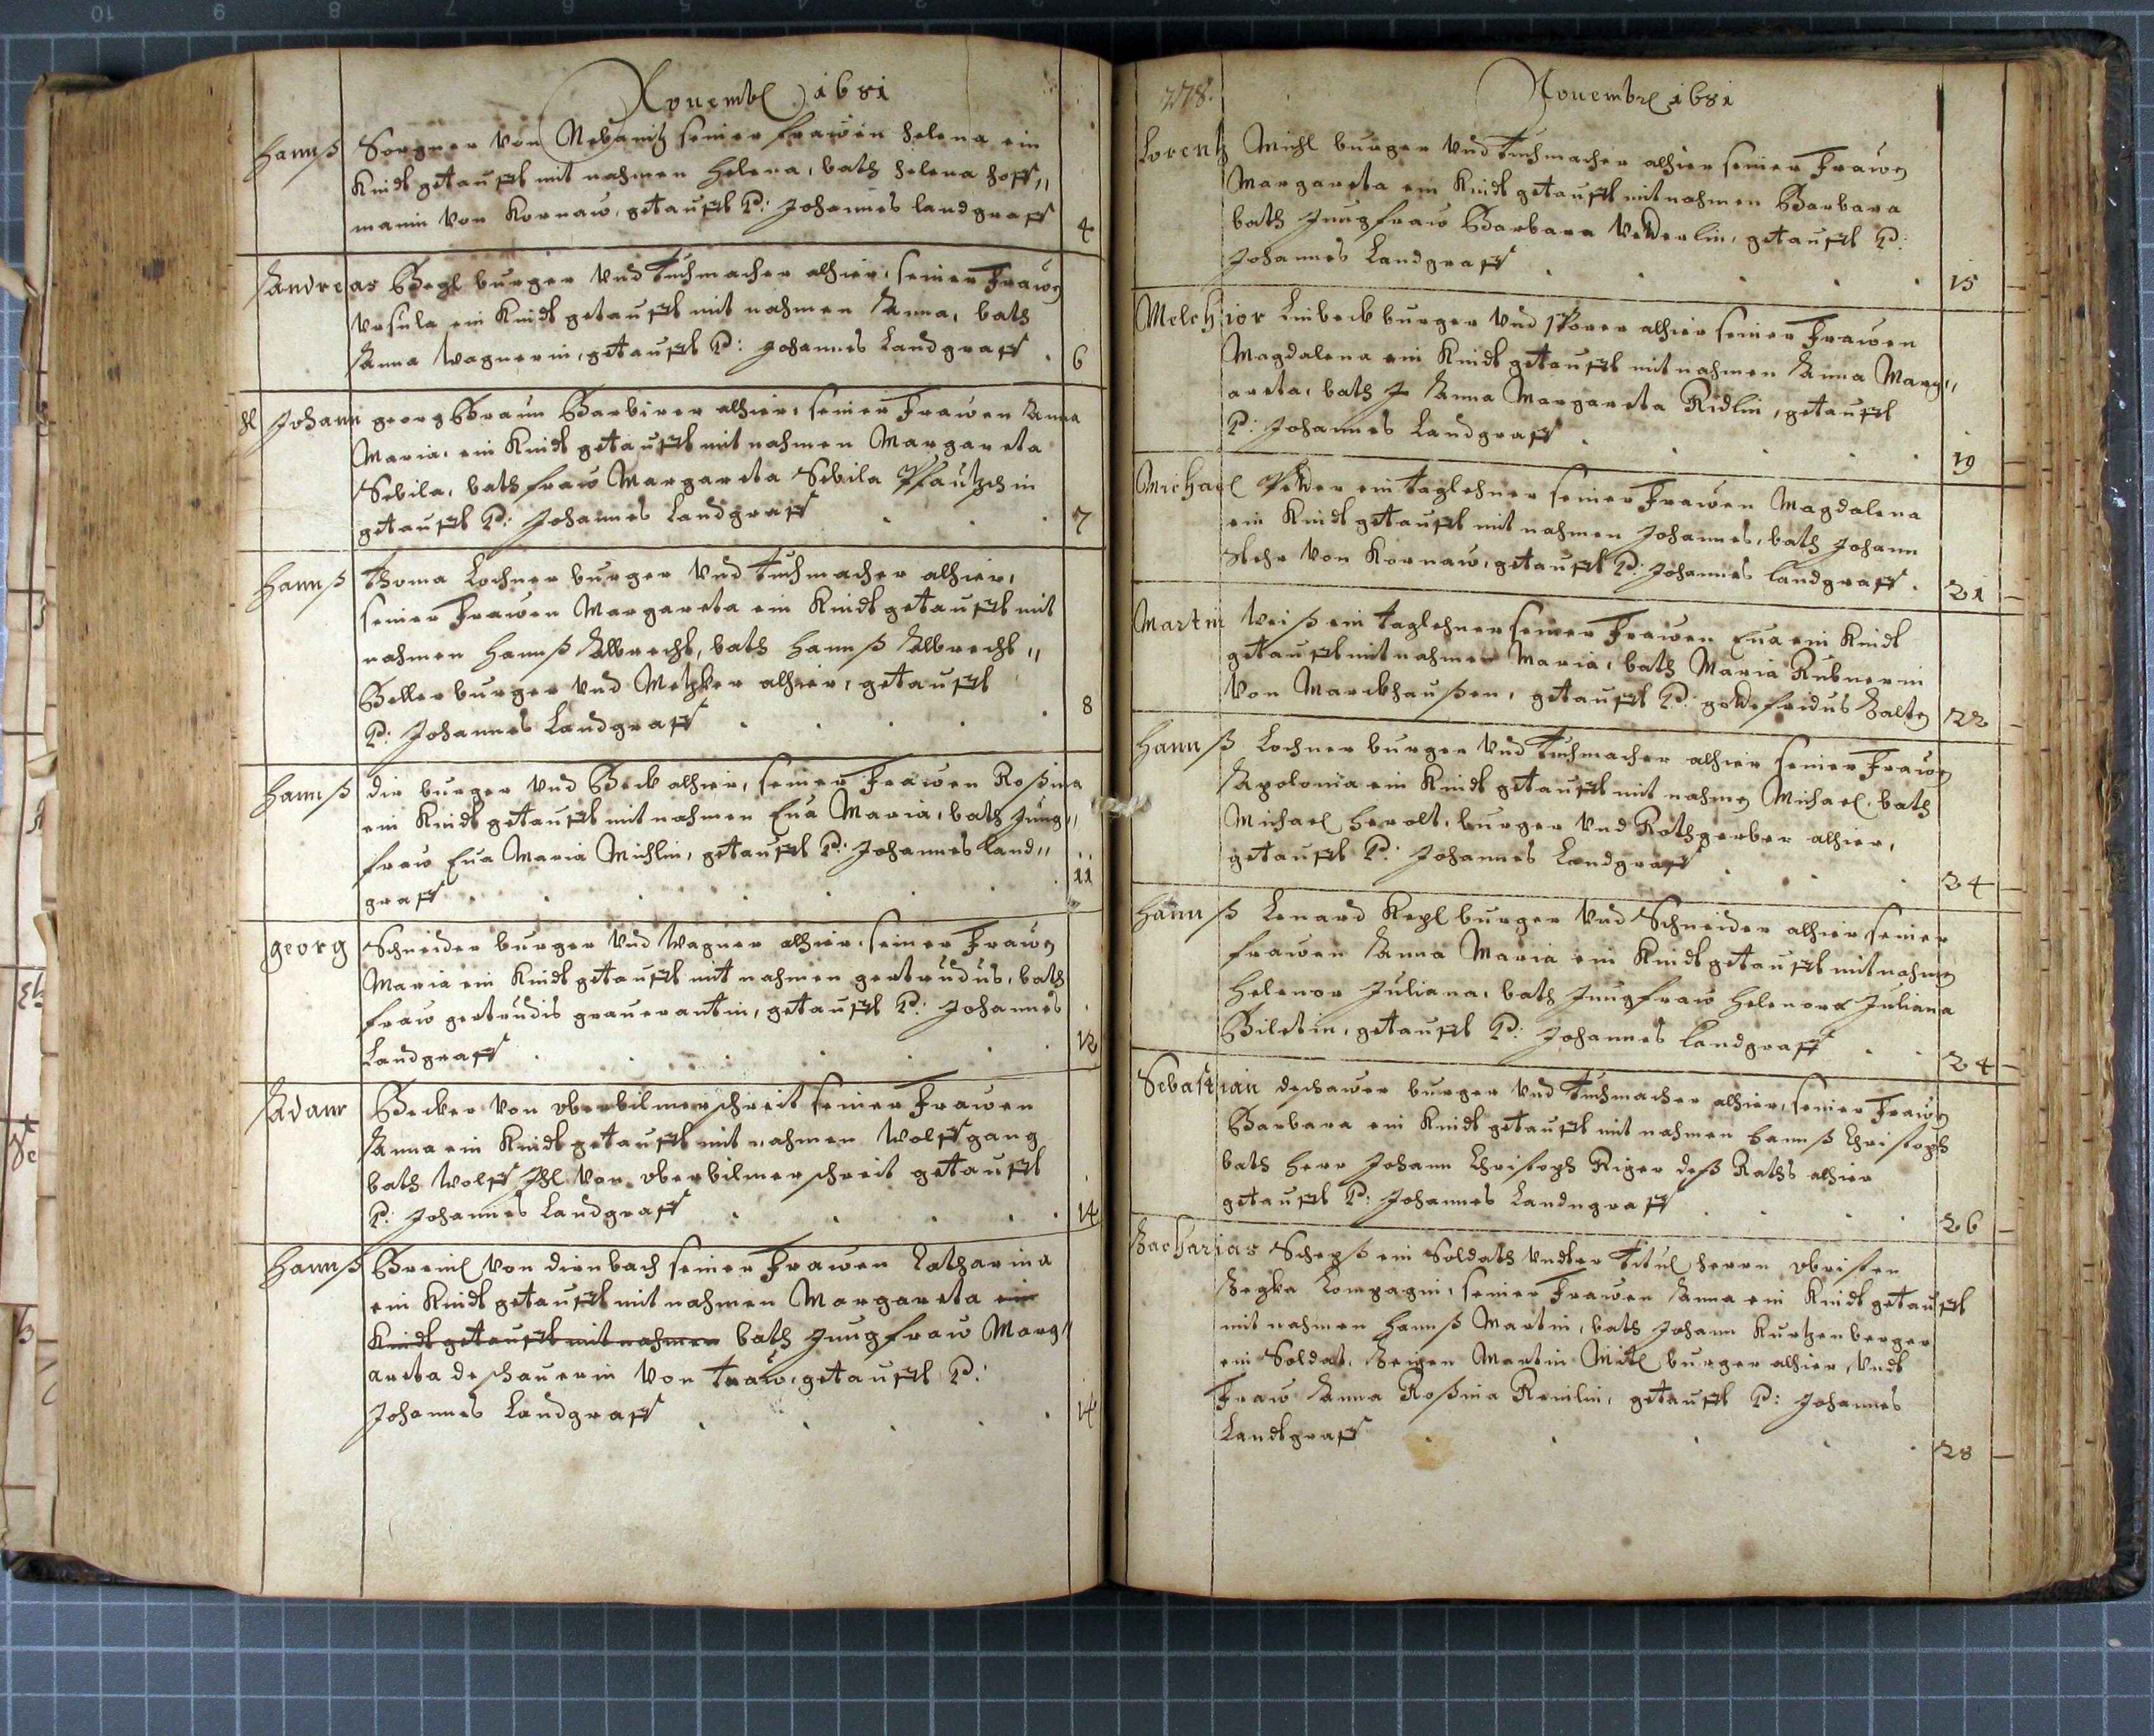 Nouembr 1681
Hannß Sorgner von Nebanitz seiner frawen Helena ein
Kindt getaufft mit nahmen Helena, bath Helena Hoff„
manin von Kornaw, getaufft P: Johannes landgraff 4
Andreas Begl burger vnd tuchmacher alhier, seiner Frawen
Vrsula ein Kindt getaufft mit nahmen Anna, bath
Anna Wagnerin, getaufft P: Johannes Landgraff . 6
H Johann georg Braun Barbirer alhier, seiner Frawen Anna
Maria, ein Kindt getaufft mit nahmen Margareta
Sebila, bath fraw Margareta Sebila
getaufft P: Johannes Landgraff . . . 7
Hannß Thoma Lochner burger vnd tuchmacher alhier,
seiner Frawen Margareta ein Kindt getaufft mit
nahmen Hannß Albrecht, bath Hannß Albrecht „
Beller burger vnd Metzker alhier, getaufft
P: Johannes Landgraff . . . . 8
Hannß dir burger vnd Beck alhier, seiner Frawen Roßina
ein Kindt getaufft mit nahmen Eua Maria, bath Jung„
fraw Eua Maria Michlin, getaufft P: Johannes land„
graff . . . . . . . 11
georg Schneider burger vnd Wagner alhier, seiner Frawen
Maria ein Kindt getaufft mit nahmen gertrudus, bath
fraw gertrudis grauerantin, getaufft P: Johannes
Landgraff . . . . . . 12
Adam Becker von oberbilmerschreit seiner Frawen
Anna ein Kindt getaufft mit nahmen Wolffgang
bath Wolff Ihl von oberbilmerschreit getaufft
P: Johannes Landgraff . . . . . 14
Hannß Breinl von dirnbach seiner Frawen Catharina
ein Kindt getaufft mit nahmen Margareta ein
Kindt getaufft mit nahmen bath Jungfraw Marg„
areta deßauerin von traw, getaufft P:
Johannes Landgraff . . . . . 14
278.
Nouembre 1681
Lorentz Michl burger vnd tuchmacher alhier seiner Frawen
Margareta ein Kindt getaufft mit nahmen Barbara
bath Jungfraw Barbara getaufft P:
Johannes Landgraff . . . . . 15
Melchior Linbeck burger vnd alhier seiner Frawen
Magdalena ein Kindt getaufft mit nahmen Anna Marg„
areta, bath J Anna Margareta Ridlin, getaufft
P: Johannes Landgraff . . . . 19
Michael ein taglehner seiner Frawen Magdalena
ein Kindt getaufft mit nahmen Johannes, bath Johann
von Kornaw, getaufft P: Johannes landgraff . 21
Martin Weiß ein taglehner seiner Frawen Eua ein Kindt
getaufft mit nahmen Maria, bath Maria Rubnerin
von Marckhaußen, getaufft P: gottefridus Balten 22
Hannß Lochner burger vnd tuchmacher alhier seiner Frawen
Apolonia ein Kindt getaufft mit nahmen Michael, bath
Michael Herolt, burger vnd Rothgerber alhier,
getaufft P: Johannes Landgraff . . . 24
Hannß Lenard Kegl burger vnd Schneider alhier seiner
frawen Anna Maria ein Kindt getaufft mit nahmen
Helenor Juliana, bath Jungfraw Helenora Juliana
Biletin, getaufft P: Johannes Landgraff . . 24
Sebastian deßawer burger vnd tuchmacher alhier, seiner Frawen
Barbara ein Kindt getaufft mit nahmen Hannß Christoph
bath Herr Johann Christoph Riger deß Raths alhier
getaufft P: Johannes Landngraff . . . 26
Zacharias Schepß ein Soldath vndter titul Herrn obristen
Compagni, seiner Frawen Anna ein Kindt getaufft
mit nahmen Hannß Martin, bath Johann Kurtzenberger
ein Soldat, Zeigen Martin Mitl burger alhier, vndt
Fraw Anna Roßina Reinlin, getaufft P: Johannes
Landtgraff . . . . . 28